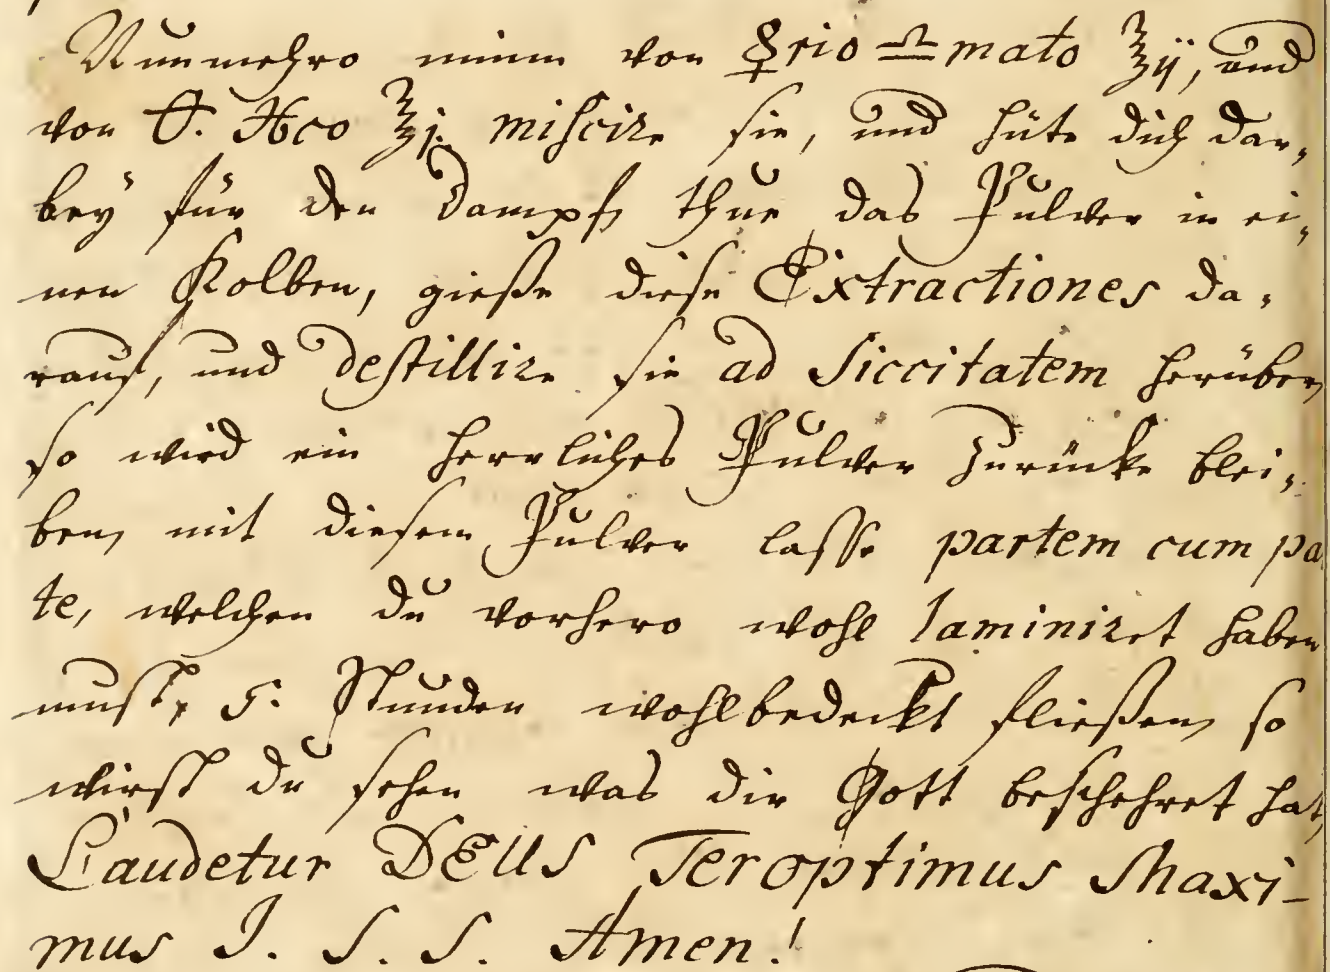 Nunmehro nimm von ☿rio ♎mato ℥ij, und
von ... ℥j. miscire sie, und hüte dich dar,
bey für den Dampf, thue das Pulver in ei,
nen Kolben, gieße diese Extractiones da,
rauf, und destillire sie ad Siccitatem herüber,
so wird ein herrliches Pulver zurücke blei,
ben, mit diesem Pulver lasse partem cum pa
te, welchen du vorhero wohl laminiret haben
must, 5. Stunden wohlbedeckt fließen, so
wirst du sehen was dir Gott beschehret hat,
Laudetur DEUS Teroptimus Maxi-
mus J. S. S. Amen!